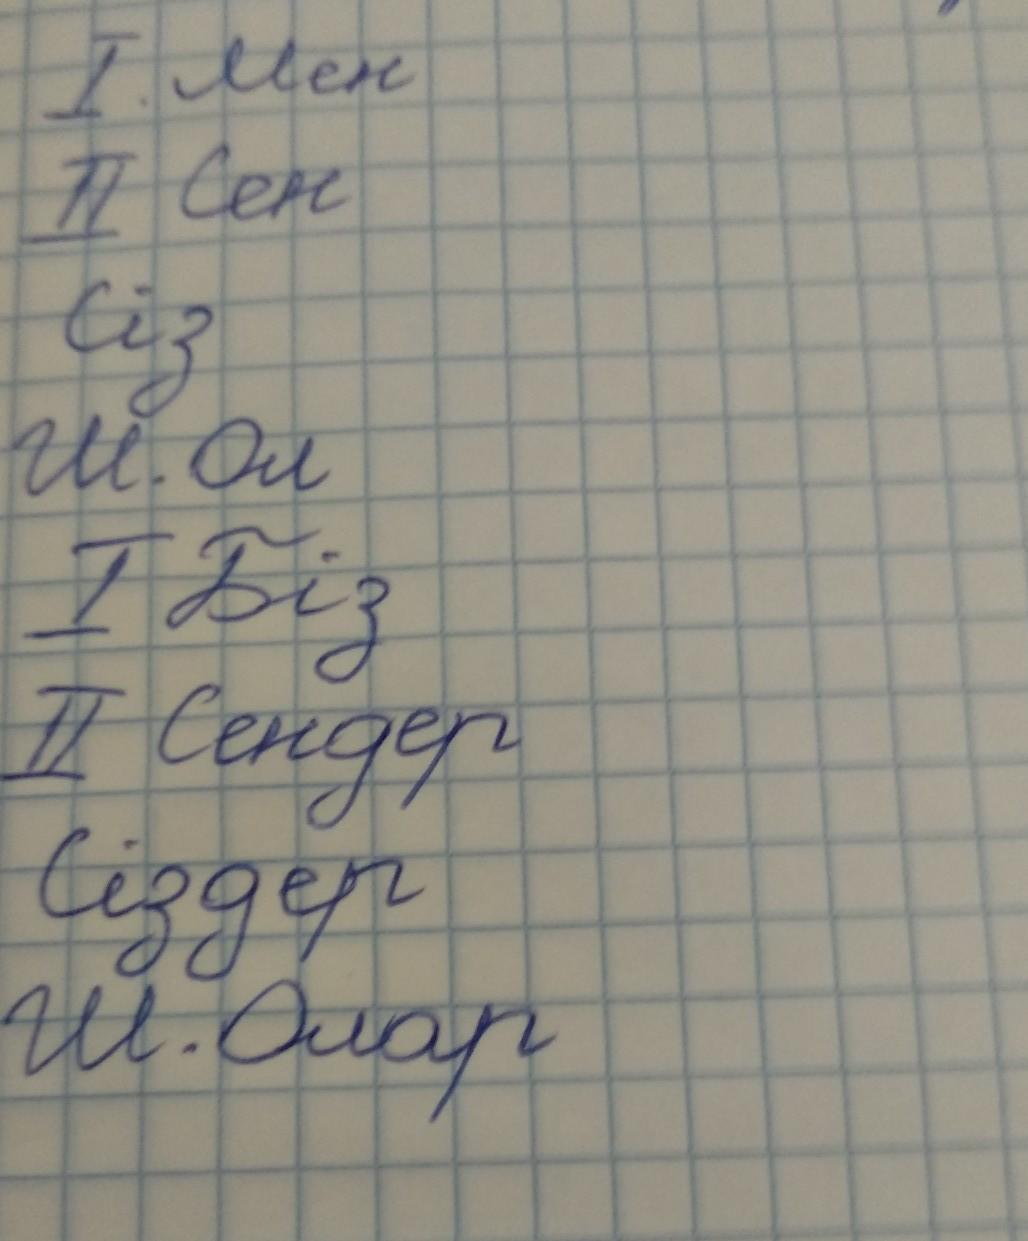 I. Мен
II Сен
Сіз
Ш. Ол
I Біз
II Сендер
Сіздер
Ш. Олар